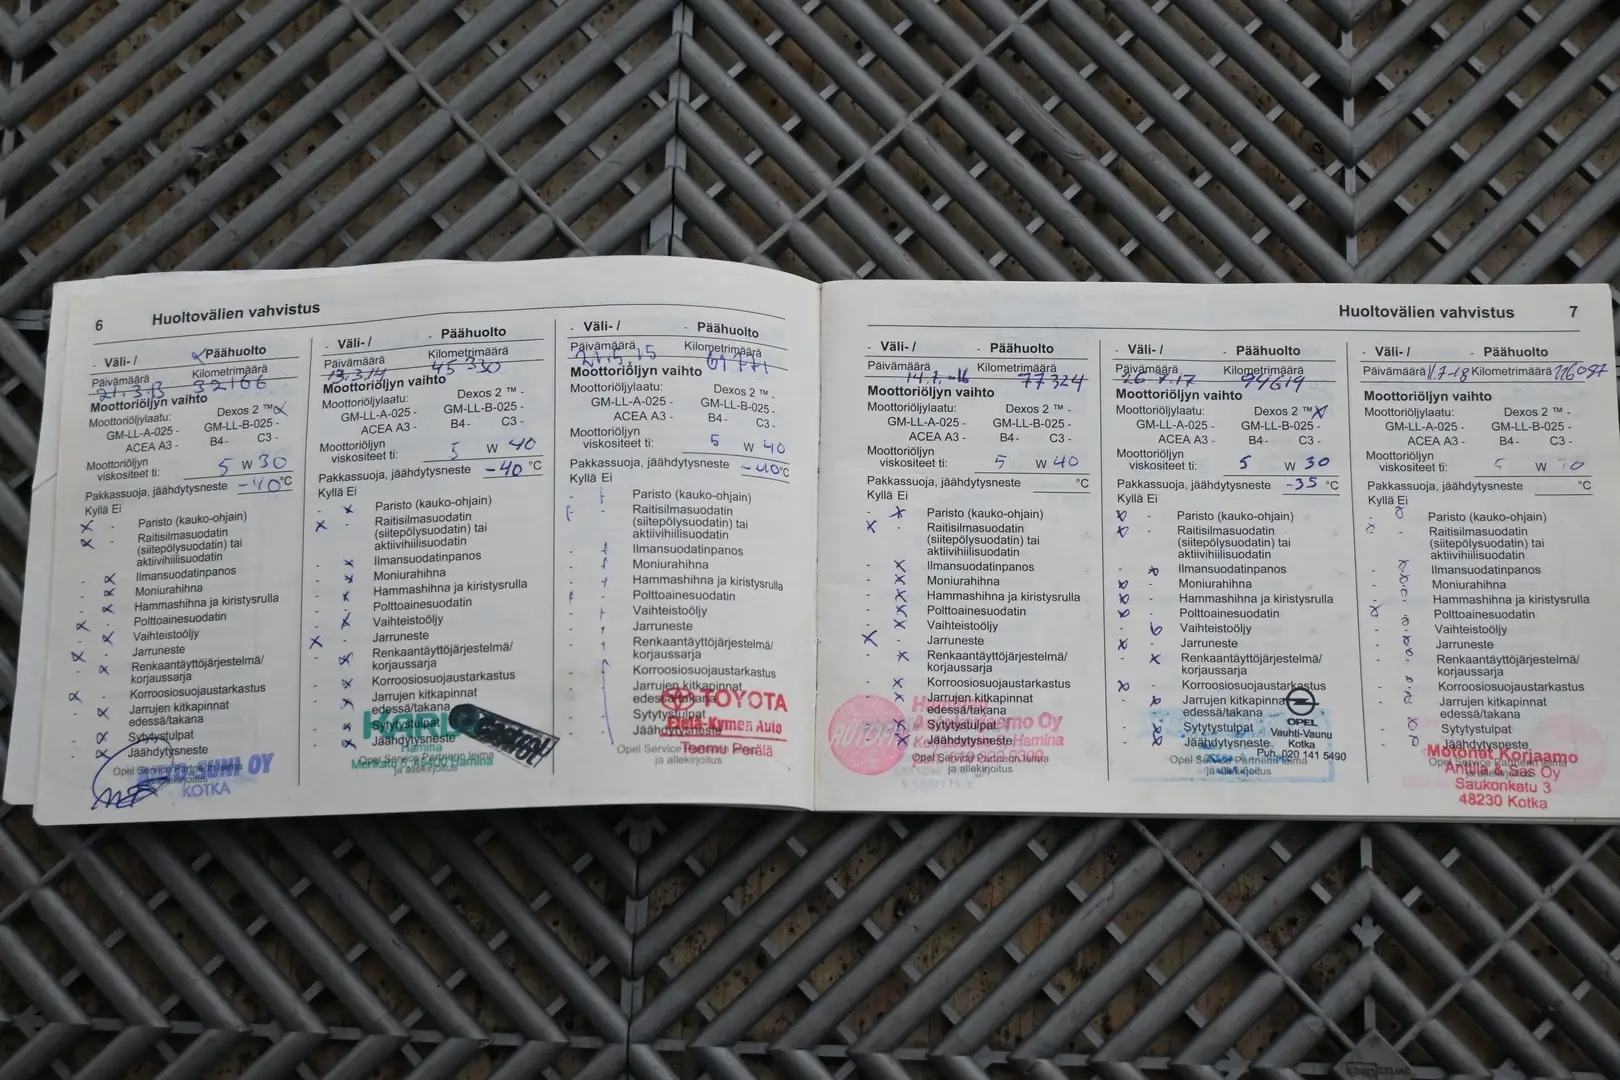 6 Huoltovälien vahvistus
- Väli- / x Päähuolto
Päivämäärä Kilometrimäärä
21.3.13 32166
Moottoriöljyn vaihto
Moottoriöljylaatu: Dexos 2 ™ x
GM-LL-A-025 - GM-LL-B-025 -
ACEA A3 - B4- C3 -
Moottoriöljyn
viskositeetti: 5 W 30
Pakkassuoja, jäähdytysneste -40 °C
Kyllä Ei
x - Paristo (kauko-ohjain)
x - Raitisilmasuodatin
(siitepölysuodatin) tai
aktiivihiilisuodatin
- x Ilmansuodatinpanos
- x Moniurahihna
- x Hammashihna ja kiristysrulla
x - Polttoainesuodatin
- x Vaihteistoöljy
x - Jarruneste
- x Renkaantäyttöjärjestelmä/
korjaussarja
x - Korroosiosuojaustarkastus
- x Jarrujen kitkapinnat
edessä/takana
- x Sytytystulpat
- x Jäähdytysneste
Opel Service Partnerin leima
ja allekirjoitus
SUNI OY
KOTKA
- Väli- / - Päähuolto
Päivämäärä Kilometrimäärä
13.3.14 45330
Moottoriöljyn vaihto
Moottoriöljylaatu: Dexos 2 ™ -
GM-LL-A-025 - GM-LL-B-025 -
ACEA A3 - B4 - C3 -
Moottoriöljyn
viskositeetti: 5 W 40
Pakkassuoja, jäähdytysneste -40 °C
Kyllä Ei
- x Paristo (kauko-ohjain)
x - Raitisilmasuodatin
(siitepölysuodatin) tai
aktiivihiilisuodatin
- x Ilmansuodatinpanos
- x Moniurahihna
- x Hammashihna ja kiristysrulla
- x Polttoainesuodatin
- x Vaihteistoöljy
x - Jarruneste
- x Renkaantäyttöjärjestelmä/
korjaussarja
- x Korroosiosuojaustarkastus
- x Jarrujen kitkapinnat
edessä/takana
- x Sytytystulpat
- x Jäähdytysneste
Opel Service Partnerin leima
ja allekirjoitus
Hamina
Hamina
- Väli- / - Päähuolto
Päivämäärä Kilometrimäärä
21.5.15 61771
Moottoriöljyn vaihto
Moottoriöljylaatu: Dexos 2 ™ -
GM-LL-A-025 - GM-LL-B-025 -
ACEA A3 - B4 - C3 -
Moottoriöljyn
viskositeetti: 5 W 40
Pakkassuoja, jäähdytysneste -40 °C
Kyllä Ei
Paristo (kauko-ohjain)
Raitisilmasuodatin
(siitepölysuodatin) tai
aktiivihiilisuodatin
Ilmansuodatinpanos
Moniurahihna
Hammashihna ja kiristysrulla
Polttoainesuodatin
Vaihteistoöljy
Jarruneste
Renkaantäyttöjärjestelmä/
korjaussarja
Korroosiosuojaustarkastus
Jarrujen kitkapinnat
edessä/takana
Sytytystulpat
Jäähdytysneste
Opel Service Partnerin leima
ja allekirjoitus
TOYOTA
Etelä-Kymen Auto
Teemu Perälä
Huoltovälien vahvistus 7
- Väli- / - Päähuolto
Päivämäärä Kilometrimäärä
14.7.-16 77324
Moottoriöljyn vaihto
Moottoriöljylaatu: Dexos 2 ™ -
GM-LL-A-025 - GM-LL-B-025 -
ACEA A3 - B4- C3 -
Moottoriöljyn
viskositeetti: 5 W 40
Pakkassuoja, jäähdytysneste °C
Kyllä Ei
- x Paristo (kauko-ohjain)
x - Raitisilmasuodatin
(siitepölysuodatin) tai
aktiivihiilisuodatin
- x Ilmansuodatinpanos
- x Moniurahihna
- x Hammashihna ja kiristysrulla
- x Polttoainesuodatin
- x Vaihteistoöljy
x - Jarruneste
- x Renkaantäyttöjärjestelmä/
korjaussarja
- x Korroosiosuojaustarkastus
- x Jarrujen kitkapinnat
edessä/takana
- x Sytytystulpat
- x Jäähdytysneste
Opel Service Partnerin leima
ja allekirjoitus
Oy
Hamina
- Väli- / - Päähuolto
Päivämäärä Kilometrimäärä
26.7.17 94619
Moottoriöljyn vaihto
Moottoriöljylaatu: Dexos 2 ™ x
GM-LL-A-025 - GM-LL-B-025 -
ACEA A3 - B4- C3 -
Moottoriöljyn
viskositeetti: 5 W 30
Pakkassuoja, jäähdytysneste -35 °C
Kyllä Ei
x - Paristo (kauko-ohjain)
x - Raitisilmasuodatin
(siitepölysuodatin) tai
aktiivihiilisuodatin
- x Ilmansuodatinpanos
x - Moniurahihna
x - Hammashihna ja kiristysrulla
x - Polttoainesuodatin
- x Vaihteistoöljy
x - Jarruneste
- x Renkaantäyttöjärjestelmä/
korjaussarja
x - Korroosiosuojaustarkastus
- x Jarrujen kitkapinnat
edessä/takana
- x Sytytystulpat
- x Jäähdytysneste
Opel Service Partnerin leima
ja allekirjoitus
OPEL
Vauhti-Vaunu
Kotka
Puh. 020 141 5490
- Väli- / - Päähuolto
Päivämäärä 11.7-18 Kilometrimäärä 116097
Moottoriöljyn vaihto
Moottoriöljylaatu: Dexos 2 ™ -
GM-LL-A-025 - GM-LL-B-025 -
ACEA A3 - B4- C3 -
Moottoriöljyn
viskositeetti: 5 W
Pakkassuoja, jäähdytysneste °C
Kyllä Ei
- x Paristo (kauko-ohjain)
x - Raitisilmasuodatin
(siitepölysuodatin) tai
aktiivihiilisuodatin
- x Ilmansuodatinpanos
- x Moniurahihna
- x Hammashihna ja kiristysrulla
x - Polttoainesuodatin
- x Vaihteistoöljy
- x Jarruneste
- x Renkaantäyttöjärjestelmä/
korjaussarja
- x Korroosiosuojaustarkastus
- x Jarrujen kitkapinnat
edessä/takana
- x Sytytystulpat
- x Jäähdytysneste
Opel Service Partnerin leima
ja allekirjoitus
Motonet Korjaamo
Oy
Saukonkatu 3
48230 Kotka